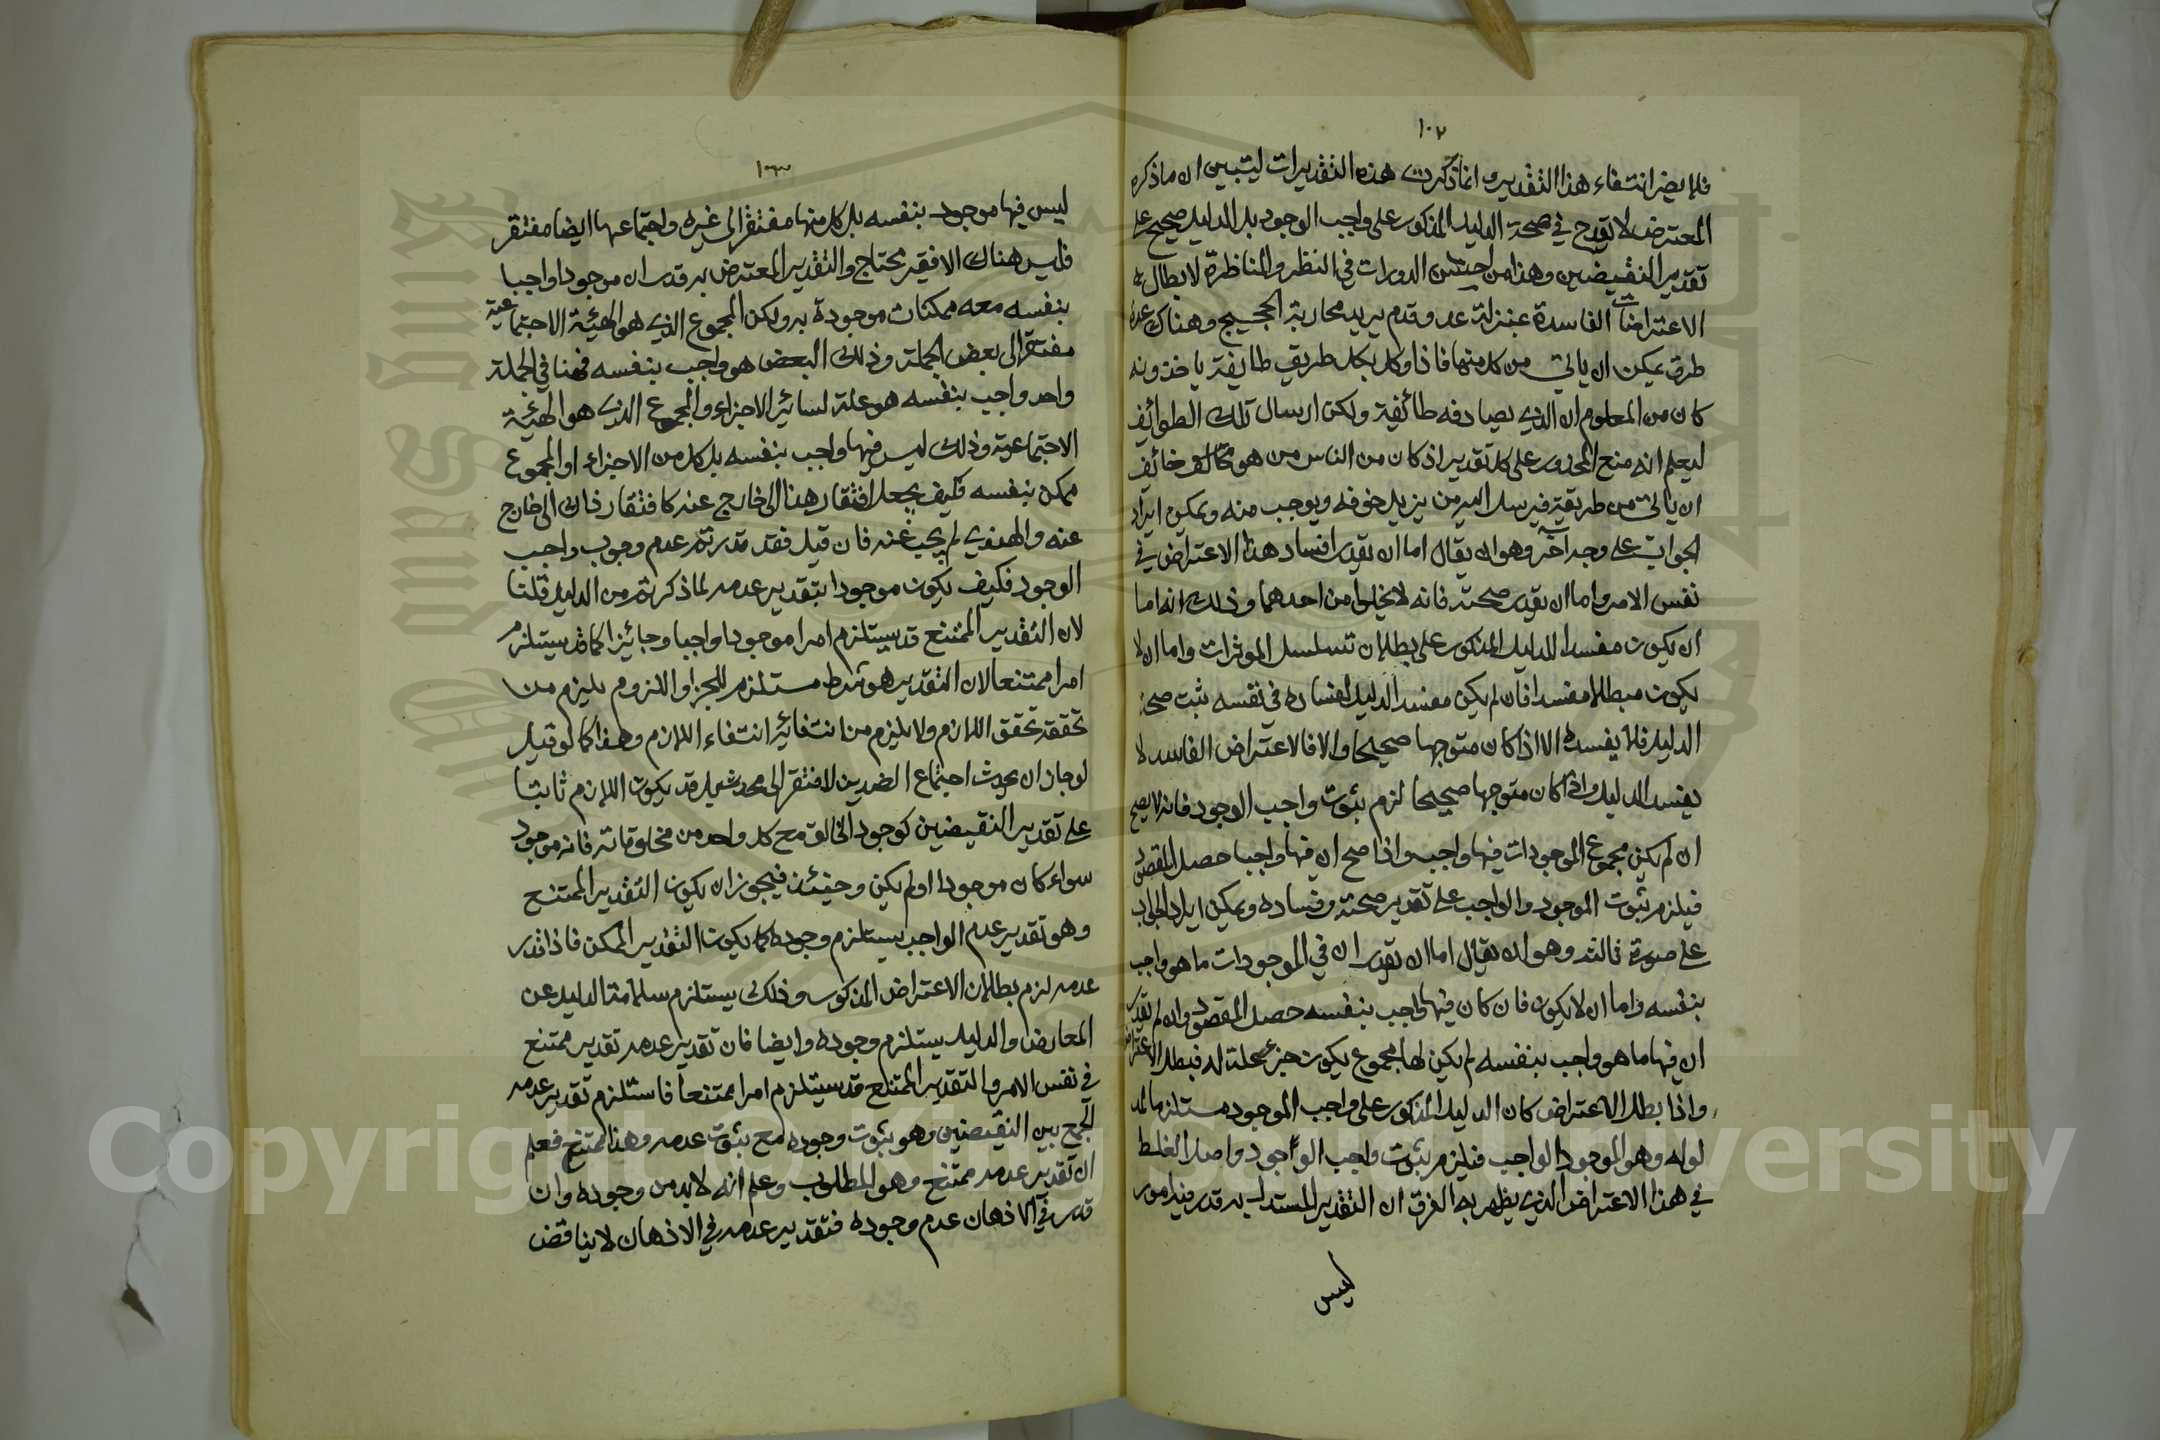 ١٠٢
فلا يضر انتفاء هذا التقدير وانما ذكرت هذه التقديرات ليتبين ان ما ذكره
المعترض لا يقدح في صحة الدليل المذكور على واجب الوجود بل الدليل صحيح على
تقدير النقيضين وهذا من احسن الدورات في النظر والمناظرة لابطال
الاعتراضات الفاسدة بمنزلة عدو قدم يريد محاربة الحجيج وهناك عدة
طرق يمكن ان ياتي من كل منها فاذا وكل بكل طريق طايفة ياخذونه
كان من المعلوم ان الذي يصادفه طائفة ولكن ارسال تلك الطوائف
ليعلم انه منع المحذور على كل تقدير اذ كان من الناس من هو خائف
ان ياتي من طريقة فيرسل اليه من يزيل خوفه ويوجب منه ويمكن ايراد
الجواب على وجه آخر وهو ان يقال اما ان يقدر افساد هذا الاعتراض في
نفس الامر واما ان يقدر صحته فانه لا يخلوا من احدهما وذلك انه اما
ان يكون مفسدا للدليل المذكور على بطلان تسلسل الموثرات واما ان لا
يكون مبطلا مفسدا فان لم يكن مفسدا لدليل لفساده في نفسه ثبت صحة
الدليل فلا يفسده الا اذا كان متوجها صحيحا والا فالاعتراض الفاسد لا
يفسد الدليل واذا كان متوجها صحيحا لزم ثبوت واجب الوجود فانه لا يصح
ان لم يكن مجموع الموجودات فيها واجب واذا صح ان فيها واجبا حصل المقصود
فيلزم ثبوت الموجود والواجب على تقدير صحته وفساده ويمكن ايراد الجواب
على صورة ثالثة وهو ان يقال اما ان يقدر ان في الموجودات ما هو واجب
بنفسه واما ان لا يكون فان كان فيها واجب بنفسه حصل المقصود وان لم يقدر
ان فيها ما هو واجب بنفسه لم يكن لها مجموع يكون جزءه علة له فبطل الاعتراض
واذا بطل الاعتراض كان الدليل المذكور على واجب الموجود مستلزما لمد
لوله وهو الموجود الواجب فيلزم ثبوت واجب الوجود واصل الغلط
في هذا الاعتراض الذي يظهر به الفرق ان التقدير المستدل به قدر فيه امور
ليس
١٠٣
ليس فيها موجود بنفسه بل كل منها مفتقر الى غيره واجتماعها ايضا مفتقر
فليس هناك الا فقير محتاج والتقدير المعترض به قدر ان موجودا واجبا
بنفسه معه ممكنات موجودة به ولكن المجموع الذي هو الهيئة الاجتماعية
مفتقر الى بعض الجملة وذلك البعض هو واجب بنفسه فهنا في الجملة
واحد واجب بنفسه هو علة لسائر الاجزاء والمجموع الذي هو الهيئة
الاجتماعية وذلك ليس فيها واجب بنفسه بل كل من الاجزاء او المجموع
ممكن بنفسه فكيف يجعل افتقار هذا الى خارج عنه كافتقار ذاك الى خارج
عنه والهندي لم يجب عنه فان قيل فقد قدرتم عدم وجوب واجب
الوجود فكيف يكون موجودا بتقدير عدمه لما ذكرتم من الدليل قلنا
لان التقدير الممتنع قد يستلزم امرا موجودا واجبا وجائزا كما قد يستلزم
امرا ممتنعا لان التقدير هو شرط مستلزم للجزا والملزوم يلزم من
تحققه تحقق اللازم ولا يلزم من انتفائه انتفاء اللازم وهذا كما لو قيل
لو جاز ان يحدث اجتماع الضدين لافتقر الى محدث بل قد يكون اللازم ثابتا
على تقدير النقيضين كوجود الخالق مع كل واحد من مخلوقاته فانه موجود
سواء كان موجودا او لم يكن وحينئذ فيجوز ان يكون التقدير الممتنع
وهو تقدير عدم الواجب يستلزم وجوده كما يكون التقدير الممكن فاذا قدر
عدمه لزم بطلان الاعتراض المذكور وذلك يستلزم سلامة الدليل عن
المعارض والدليل يستلزم وجوده وايضا فان تقدير عدمه تقدير ممتنع
في نفس الامر والتقدير الممتنع قد يستلزم امرا ممتنعا فاستلزم تقدير عدمه
الجمع بين النقيضين وهو ثبوت وجوده مع ثبوت عدمه وهذا ممتنع فعلم
ان تقدير عدمه ممتنع وهو المطلوب وعلم انه لا بد من وجوده وان
قدر في الاذهان عدم وجوده فتقدير عدمه في الاذهان لا يناقض
Copyright © King Saud University